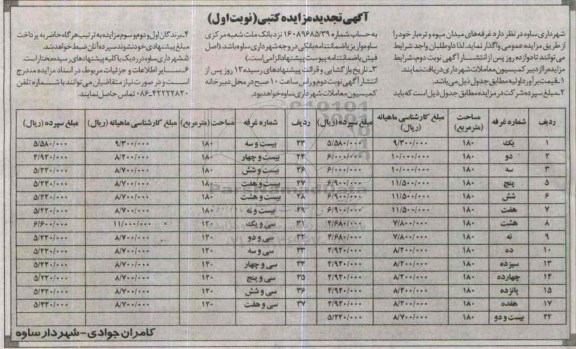 آگهی تجدید مزایده کتبی (نوبت اول)
شهرداری ساوه در نظر دارد غرفه‌های میدان میوه و تره‌بار خود را
از طریق مزایده عمومی واگذار نماید. لذا داوطلبان واجد شرایط
می‌توانند تا دوازده روز پس از انتشار آگهی نوبت دوم، شرایط
مزایده را از دبیر کمیسیون معاملات شهرداری دریافت نمایند.
۱-قیمت برآورد اولیه مطابق جدول ذیل می‌باشد.
۲-مبلغ سپرده شرکت در مزایده مطابق جدول ذیل است که باید
به حساب شماره ۱۶۰۸۹۶۸۵/۳۹ نزد بانک ملت شعبه مرکزی
ساوه واریز یا ضمانتنامه بانکی در وجه شهرداری ساوه باشد. (اصل
فیش یا ضمانتنامه پیوست پیشنهاد الزامی است)
۳-تاریخ بازگشایی و قرائت پیشنهادهای رسیده ۱۲ روز پس از
انتشار آگهی نوبت دوم و رأس ساعت ۱۰ صبح در محل دبیرخانه
کمیسیون معاملات شهرداری ساوه خواهد بود.
۴-برندگان اول و دوم و سوم مزایده به ترتیب هرگاه حاضر به پرداخت
مبلغ پیشنهادی خود نشوند سپرده آنان ضبط خواهد شد.
۵-شهرداری ساوه در رد یک یا کلیه پیشنهادهای رسیده مختار است.
۶-سایر اطلاعات و جزئیات مربوط در اسناد مزایده مندرج
است و در صورت نیاز، متقاضیان می‌توانند با شماره تلفن
۰۸۶-۴۲۲۲۲۸۲۰ تماس حاصل نمایند.
ردیف شماره غرفه مساحت (مترمربع) مبلغ کارشناسی ماهیانه (ریال) مبلغ سپرده (ریال) ردیف شماره غرفه مساحت (مترمربع) مبلغ کارشناسی ماهیانه (ریال) مبلغ سپرده (ریال)
۱ یک ۱۸۰ ۹/۳۰۰/۰۰۰ ۵/۵۸۰/۰۰۰ ۲۳ بیست و سه ۱۸۰ ۹/۳۰۰/۰۰۰ ۵/۵۸۰/۰۰۰
۲ دو ۱۸۰ ۱۰/۰۰۰/۰۰۰ ۶/۰۰۰/۰۰۰ ۲۴ بیست و چهار ۱۸۰ ۸/۲۰۰/۰۰۰ ۴/۹۲۰/۰۰۰
۳ سه ۱۸۰ ۱۰/۰۰۰/۰۰۰ ۶/۰۰۰/۰۰۰ ۲۶ بیست و شش ۱۸۰ ۸/۷۰۰/۰۰۰ ۵/۲۲۰/۰۰۰
۵ پنج ۱۸۰ ۱۱/۵۰۰/۰۰۰ ۶/۹۰۰/۰۰۰ ۲۷ بیست و هفت ۱۸۰ ۸/۷۰۰/۰۰۰ ۵/۲۲۰/۰۰۰
۶ شش ۱۸۰ ۱۱/۵۰۰/۰۰۰ ۶/۹۰۰/۰۰۰ ۲۸ بیست و هشت ۱۸۰ ۸/۷۰۰/۰۰۰ ۵/۲۲۰/۰۰۰
۷ هفت ۱۸۰ ۱۱/۵۰۰/۰۰۰ ۶/۹۰۰/۰۰۰ ۲۹ بیست و نه ۱۸۰ ۸/۷۰۰/۰۰۰ ۵/۲۲۰/۰۰۰
۸ هشت ۱۸۰ ۷/۸۰۰/۰۰۰ ۴/۶۸۰/۰۰۰ ۳۱ سی و یک ۱۲۰ ۱۱/۰۰۰/۰۰۰ ۶/۶۰۰/۰۰۰
۹ نه ۱۸۰ ۷/۸۰۰/۰۰۰ ۴/۶۸۰/۰۰۰ ۳۲ سی و دو ۱۲۰ ۸/۷۰۰/۰۰۰ ۵/۲۲۰/۰۰۰
۱۰ ده ۱۸۰ ۸/۲۰۰/۰۰۰ ۴/۹۲۰/۰۰۰ ۳۳ سی و سه ۱۲۰ ۸/۷۰۰/۰۰۰ ۵/۲۲۰/۰۰۰
۱۳ سیزده ۱۸۰ ۸/۲۰۰/۰۰۰ ۴/۹۲۰/۰۰۰ ۳۴ سی و چهار ۱۲۰ ۸/۷۰۰/۰۰۰ ۵/۲۲۰/۰۰۰
۱۴ چهارده ۱۸۰ ۸/۲۰۰/۰۰۰ ۴/۹۲۰/۰۰۰ ۳۵ سی و پنج ۱۲۰ ۸/۷۰۰/۰۰۰ ۵/۲۲۰/۰۰۰
۱۵ پانزده ۱۸۰ ۸/۲۰۰/۰۰۰ ۴/۹۲۰/۰۰۰ ۳۶ سی و شش ۱۲۰ ۸/۷۰۰/۰۰۰ ۵/۲۲۰/۰۰۰
۱۷ هفده ۱۸۰ ۸/۲۰۰/۰۰۰ ۴/۹۲۰/۰۰۰ ۳۷ سی و هفت ۱۲۰ ۸/۷۰۰/۰۰۰ ۵/۲۲۰/۰۰۰
۲۲ بیست و دو ۱۸۰ ۸/۷۰۰/۰۰۰ ۵/۲۲۰/۰۰۰
کامران جوادی-شهردار ساوه